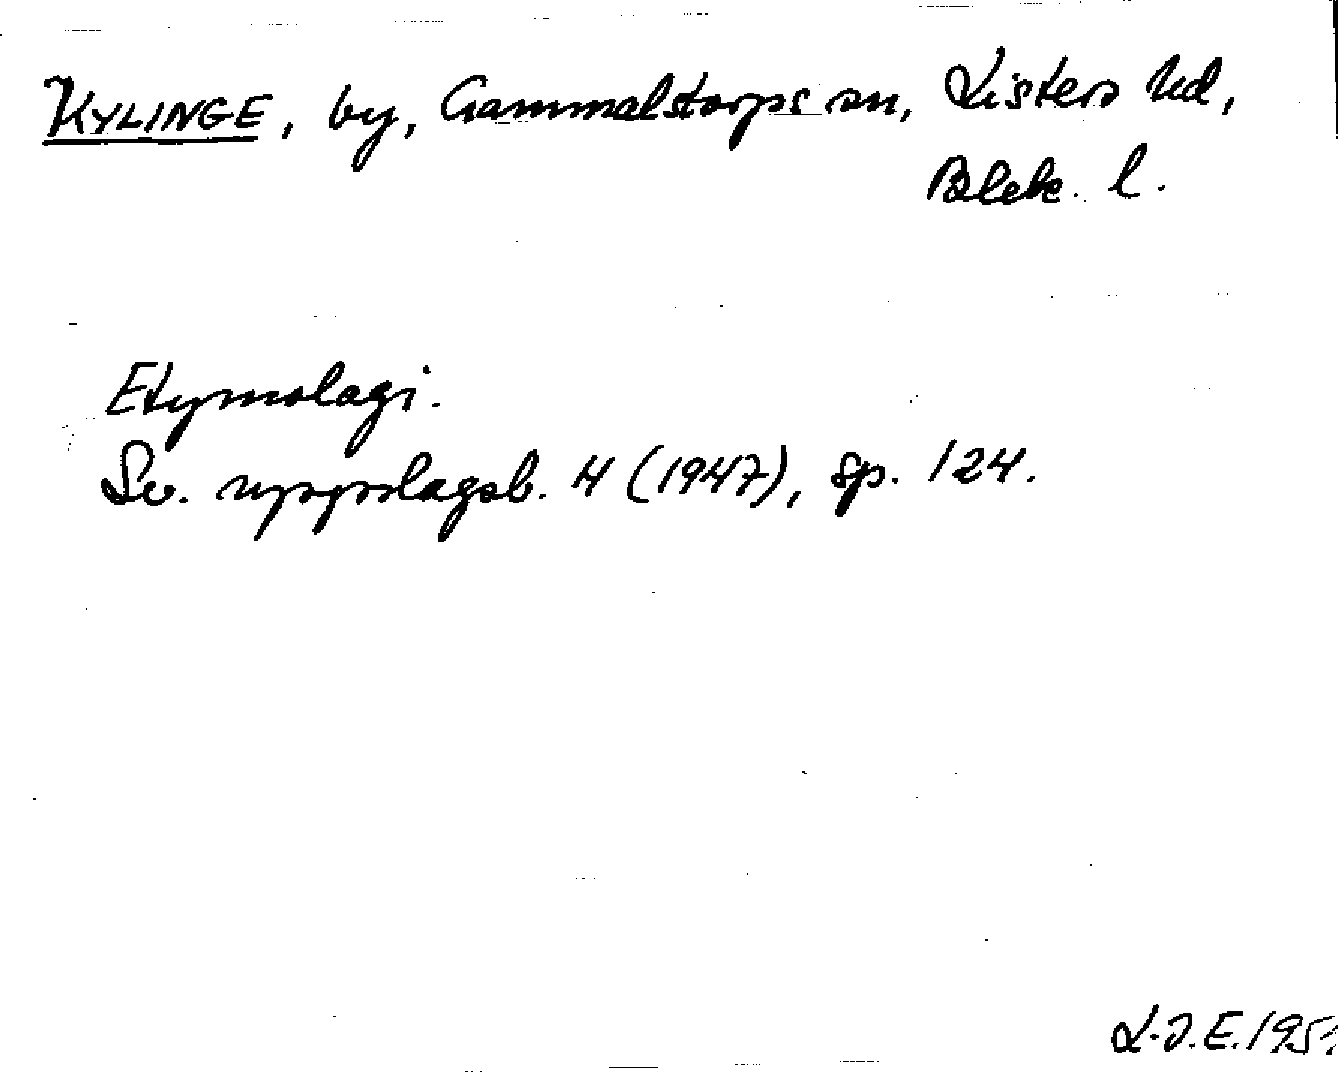 KYLINGE, by, Gammalstorps sn, Listers hd,
Blek. l.
Etymologi.
Sv. uppslagsb. 4 (1947), sp. 124.
L.J.E.